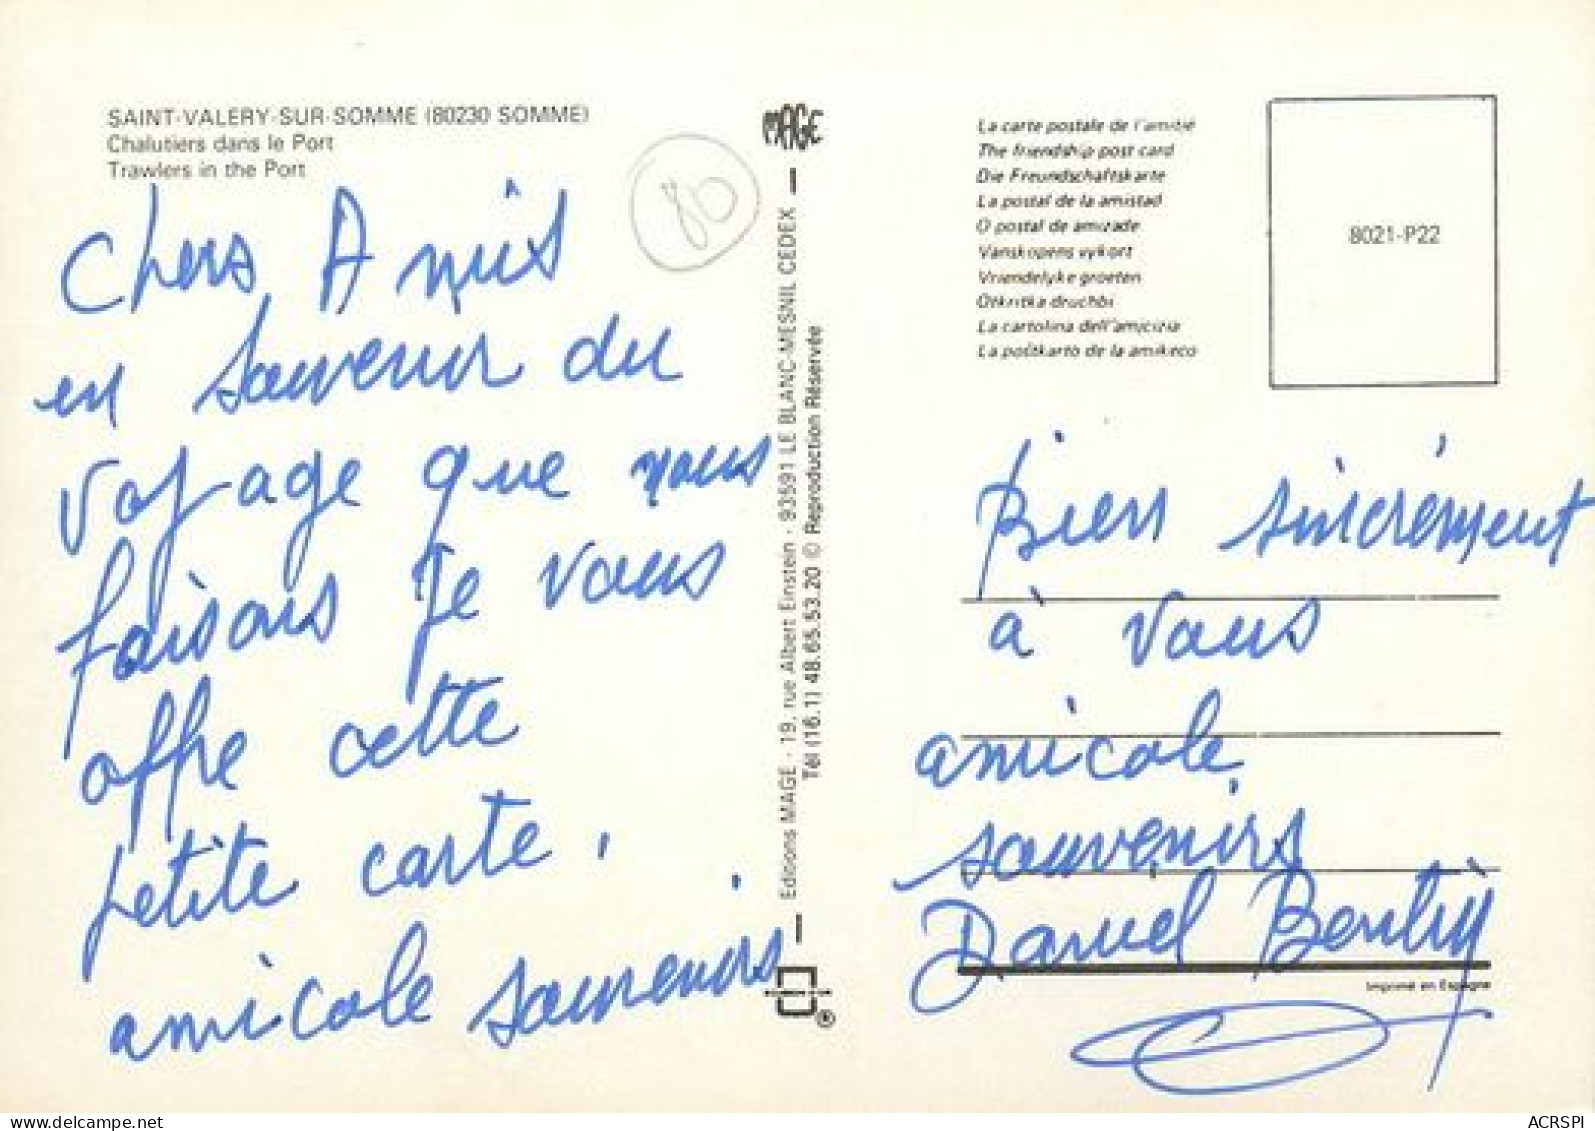 SAINT-VALERY-SUR-SOMME (80230 SOMME)
Chalutiers dans le Port
Trawlers in the Port
80
Chers Amis
en souvenir du
voyage que nous
faisons je vous
offre cette
petite carte,
amicale souvenirs
MAGE
Editions MAGE - 19, rue Albert Einstein - 93591 LE BLANC-MESNIL CEDEX
Tél (16.1) 48.65.53.20 © Reproduction Réservée
®
La carte postale de l'amitié
The friendship post card
Die Freundschaftskarte
La postal de la amistad
O postal de amizade
Vanskopens vykort
Vriendelyke groeten
Otkritka druchbi
La cartolina dell'amicizia
La poŝtkarto de la amikeco
8021-P22
Bien sincèrement
à vous
amicale
souvenirs
Daniel
Imprimé en Espagne
ACRSPI